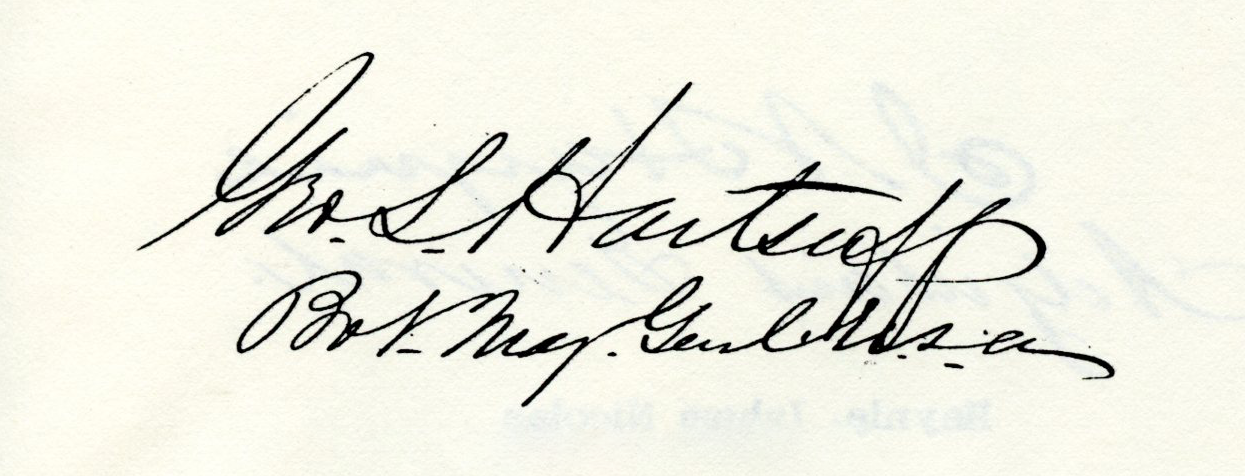 Geo. L. Hartsuff
Bvt. Maj. Genl. U.S.A